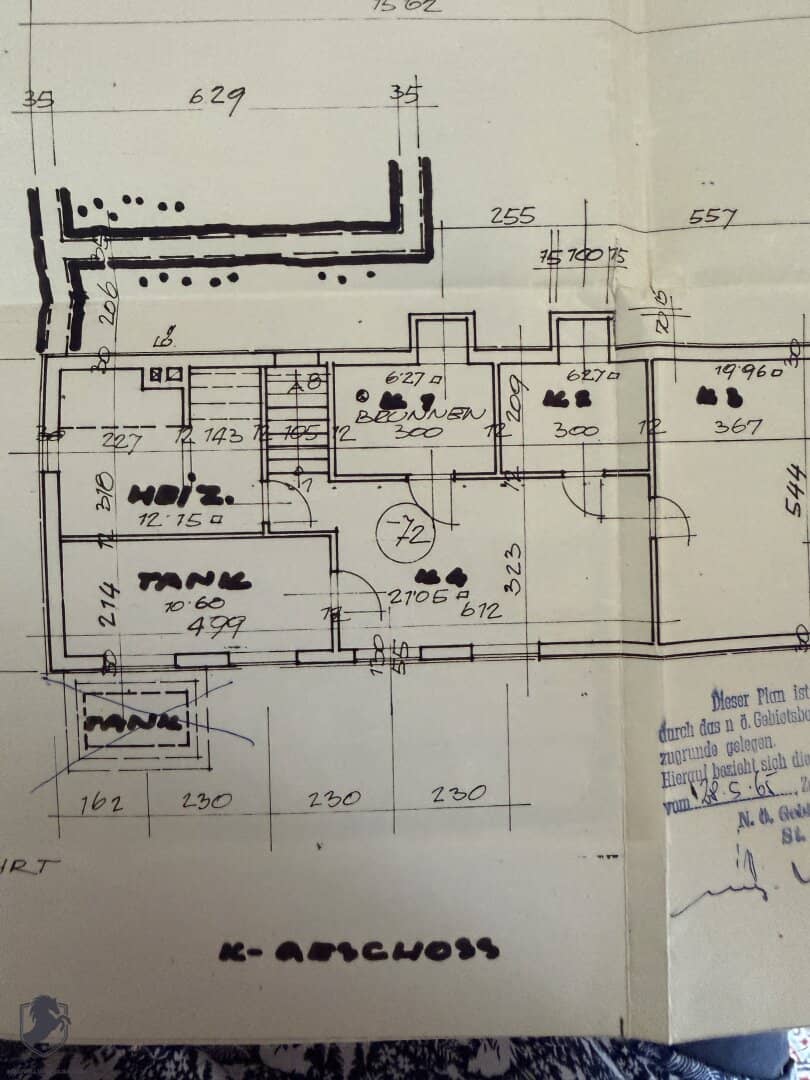 1562
35 629 35
255 557
15 100 15
35
206
20 15
LÖ.
30
8
6·27 □
K 1
BRUNNEN
300
209
6·27 □
K 2
300
19·96 □
K 3
367
30
30 227 12 143 12 105 12
12
12
318
HEIZ.
12·15 □
1
12
544
-72
12
TANK
10·60
499
214
12
K 4
21·05 □
612
323
30
130
55
30
TANK
162 230 230 230
HRT
K-GESCHOSS
Dieser Plan ist
durch das n ö. Gebietsba
zugrunde gelegen.
Hierauf bezieht sich die
vom 28.5.65, Z
N. ö. Geb
St.